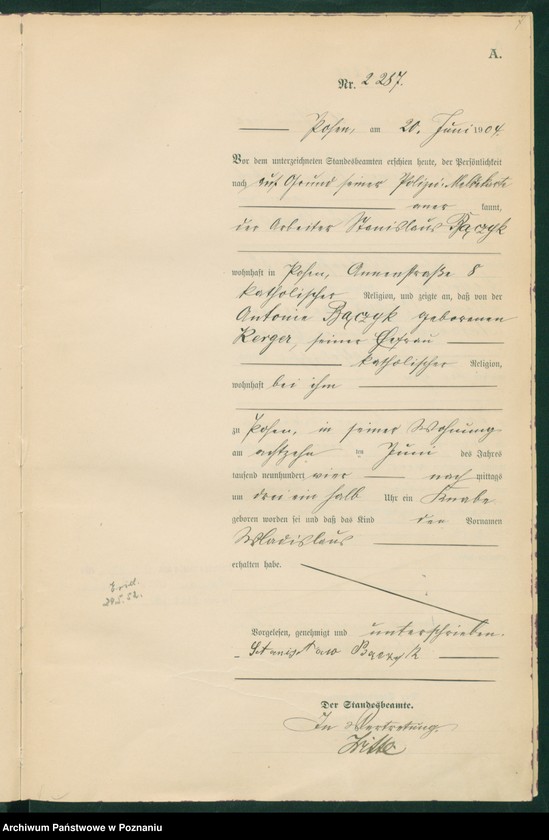 A.
Nr. 2287.
Posen, am 20. Juni 1904.
Vor dem unterzeichneten Standesbeamten erschien heute, der Persönlichkeit
nach auf Grund seiner Polizei-Meldekarte
aner kannt,
der Arbeiter Stanislaus Bączyk
wohnhaft in Posen, Annenstraße 8
katholischer Religion, und zeigte an, daß von der
Antonie Bączyk geborenen
Kerger, seiner Ehefrau
katholischer Religion,
wohnhaft bei ihm
zu Posen, in seiner Wohnung
am achtzehn ten Juni des Jahres
tausend neunhundert vier nach mittags
um drei ein halb Uhr ein Knabe
geboren worden sei und daß das Kind den Vornamen
Wladislaus
erhalten habe.
29.5.52.
Vorgelesen, genehmigt und unterschrieben.
Stanisław Bączyk
Der Standesbeamte.
In Vertretung.
Witte
Archiwum Państwowe w Poznaniu